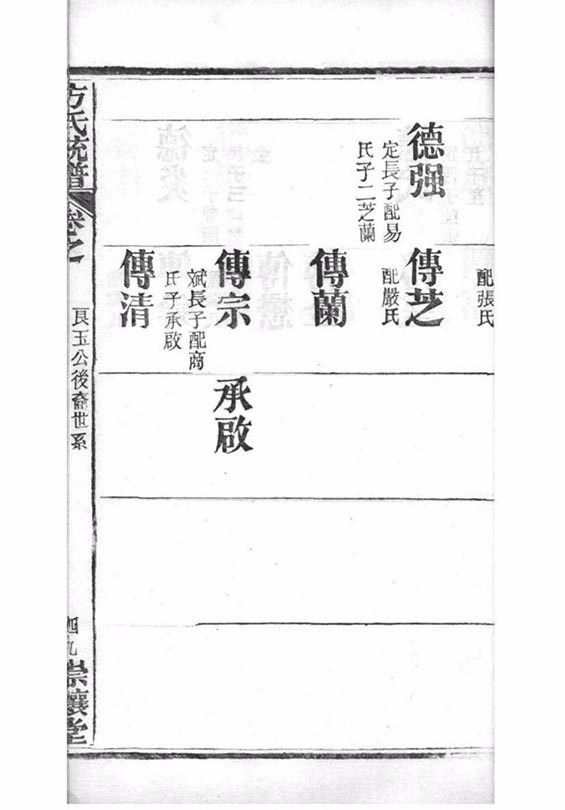 配張氏
德强
定長子配易
氏子二芝蘭
傳芝
配嚴氏
傳蘭
傳宗
斌長子配商
氏子承啟
承啟
傳清
方氏統譜
卷之
良玉公後裔世系
四九
崇讓堂